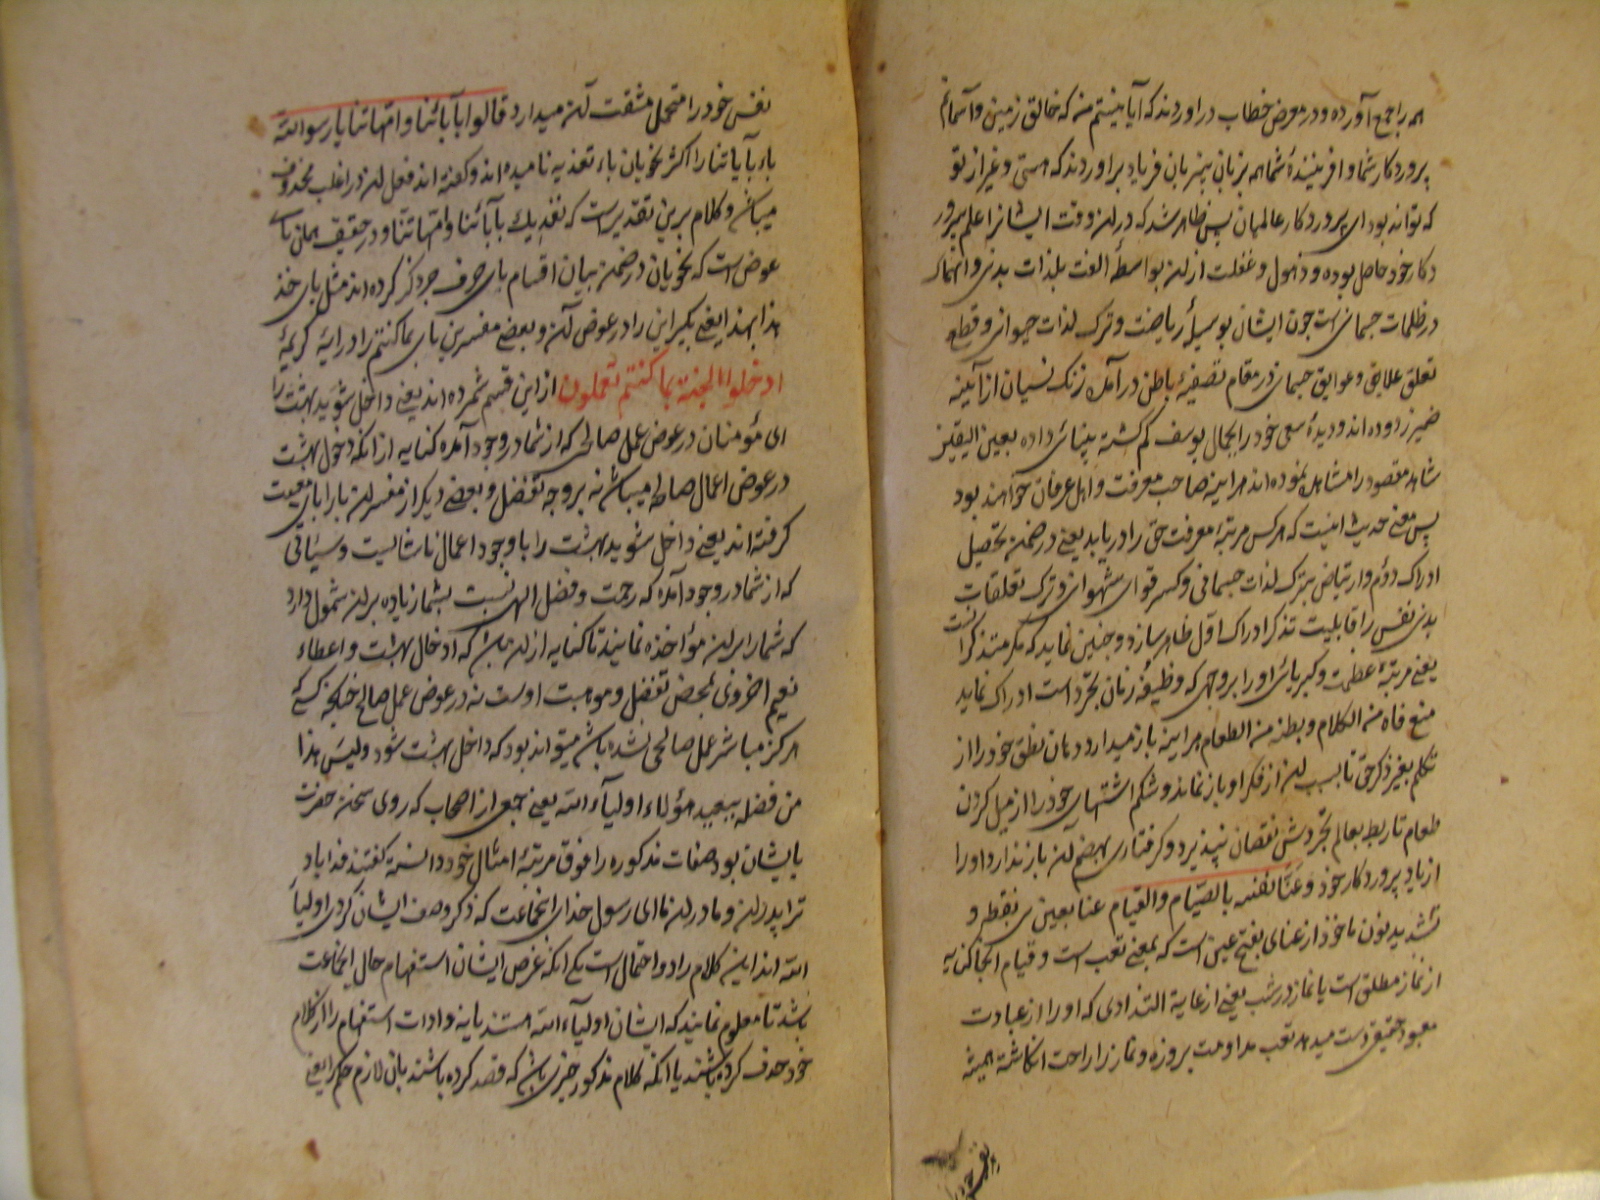 همه را جمع آورده و در معرض خطاب در آوردند که آیا نیستم من که خالق زمین و آسمانم
پروردکار شما و افریننده شما همه بزبان بیزبانی فریاد براوردند که هستی و غیر از تو
که تواند بود ای پروردکار عالمیان پس ظاهر شد که در ان وقت ایشانرا علم بپرور
دکار خود حاصل بوده و ذهول و غفلت از ان بواسطهٔ الفت بلذات بدنی و انهماک
در ظلمات جسمانی است چون ایشان بوسیلهٔ ریاضت و ترک لذات حیوانی و قطع
تعلق علایق و عوایق جسمانی در مقام تصفیهٔ باطن در آمده زنک نسیان از آیینه
ضمیر زدوده اند و دیدهٔ سعی خود را بجمال یوسف کم کشته بینائی داده بعین الیقین
شاهد مقصود را مشاهده نموده اند هر آینه صاحب معرفت و اهل عرفان خواهند بود
پس معنی حدیث اینست که هر کس مرتبهٔ معرفت حق را دریابد یعنی در ضمن تحصیل
ادراک دوم و ارتیاض بترک لذات جسمانی و کسر قوای شهوانی و ترک تعلقات
بدنی نفس را قابلیت تذکر ادراک اول ظاهر سازد و چنین نماید که مکر متذکر انست
یعنی مرتبهٔ عظمت و کبریائی او را بر وجهی که وظیفهٔ زمان تجرد است ادراک نماید
منع فاه من الکلام و بطنه من الطعام هر اینه باز میدارد دهان نطق خود را از
تکلم بغیر ذکر حق تا بسبب ان از فکر او باز نماند و شکم اشتهای خود را از میل کردن
طعام تا ربط بعالم تجردش نقصان نپذیرد و کرفتاری بهضم ان باز ندارد او را
از یاد پروردکار خود و عنّا نفسه بالصیام والقیام عنا بعین بی نقطه و
تشدید نون ماخوذ از عنای بفتح عین است که بمعنی تعب است و قیام اینجا کنایه
از نماز مطلق است یا نماز در شب یعنی از غایة التذاذی که او را از عبادت
معبود حقیقی دست میدهد تعب مداومت بروزه و نماز را راحت انکاشته همیشه
نفس خود را
نفس خود را متحمل مشقت آن میدارد قالوا بآبائنا وامهاتنا یا رسول الله
باء بآبائنا را اکثر نحویان باء تفدیه نامیده اند و کفته اند فعل ان در اغلب محذوف
میباشد و کلام برین تقدیر است که نفدیک بآبائنا وامهاتنا و در حقیقت همان بای
عوض است که نحویان در ضمن بیان اقسام بای حرف جر ذکر کرده اند مثل بای خذ
هذا بهذا یعنی بکیر این را در عوض آن و بعضی مفسرین بای بما کنتم را در ایهٔ کریمهٔ
ادخلوا الجنة بما کنتم تعملون از این قسم شمرده اند یعنی داخل شوید بهشت را
ای مؤمنان در عوض عمل صالحی که از شما در وجود آمده کنایه از انکه دخول بهشت
در عوض اعمال صالحه میباشد نه بر وجه تفضل و بعضی دیکر از مفسران با را بای معیت
کرفته اند یعنی داخل شوید بهشت را با وجود اعمال ناشایست و سیئاتی
که از شما در وجود آمده که رحمت و فضل الهی نسبت بشما زیاده بر ان شمول دارد
که شما را بر ان مؤاخذه نمایند تا کنایه از ان باشد که ادخال بهشت و اعطاء
نعیم اخروی بمحض تفضل و موهبت اوست نه در عوض عمل صالح چنانچه کسی که
هرکز مباشر عمل صالحی نشده باشد میتواند بود که داخل بهشت شود و لیس هذا
من فضله ببعید هؤلاء اولیآء الله یعنی جمعی از اصحاب که روی سخن حضرت
بایشان بود صفات مذکوره را فوق مرتبهٔ امثال خود دانسته کفتند فدا باد
ترا پدران و مادران ما ای رسول خدا ی انجماعت که ذکر وصف ایشان کردی اولیآ
الله اند این کلام را دو احتمال است یکی انکه غرض ایشان استفهام حال انجماعت
باشد تا معلوم نمایند که ایشان اولیاء الله هستند یا نه و ادات استفهام را از کلام
خود حذف کرده باشند یا انکه کلام مذکور خبری باشد که قصد کرده باشند بان لازم حکم را یعنی